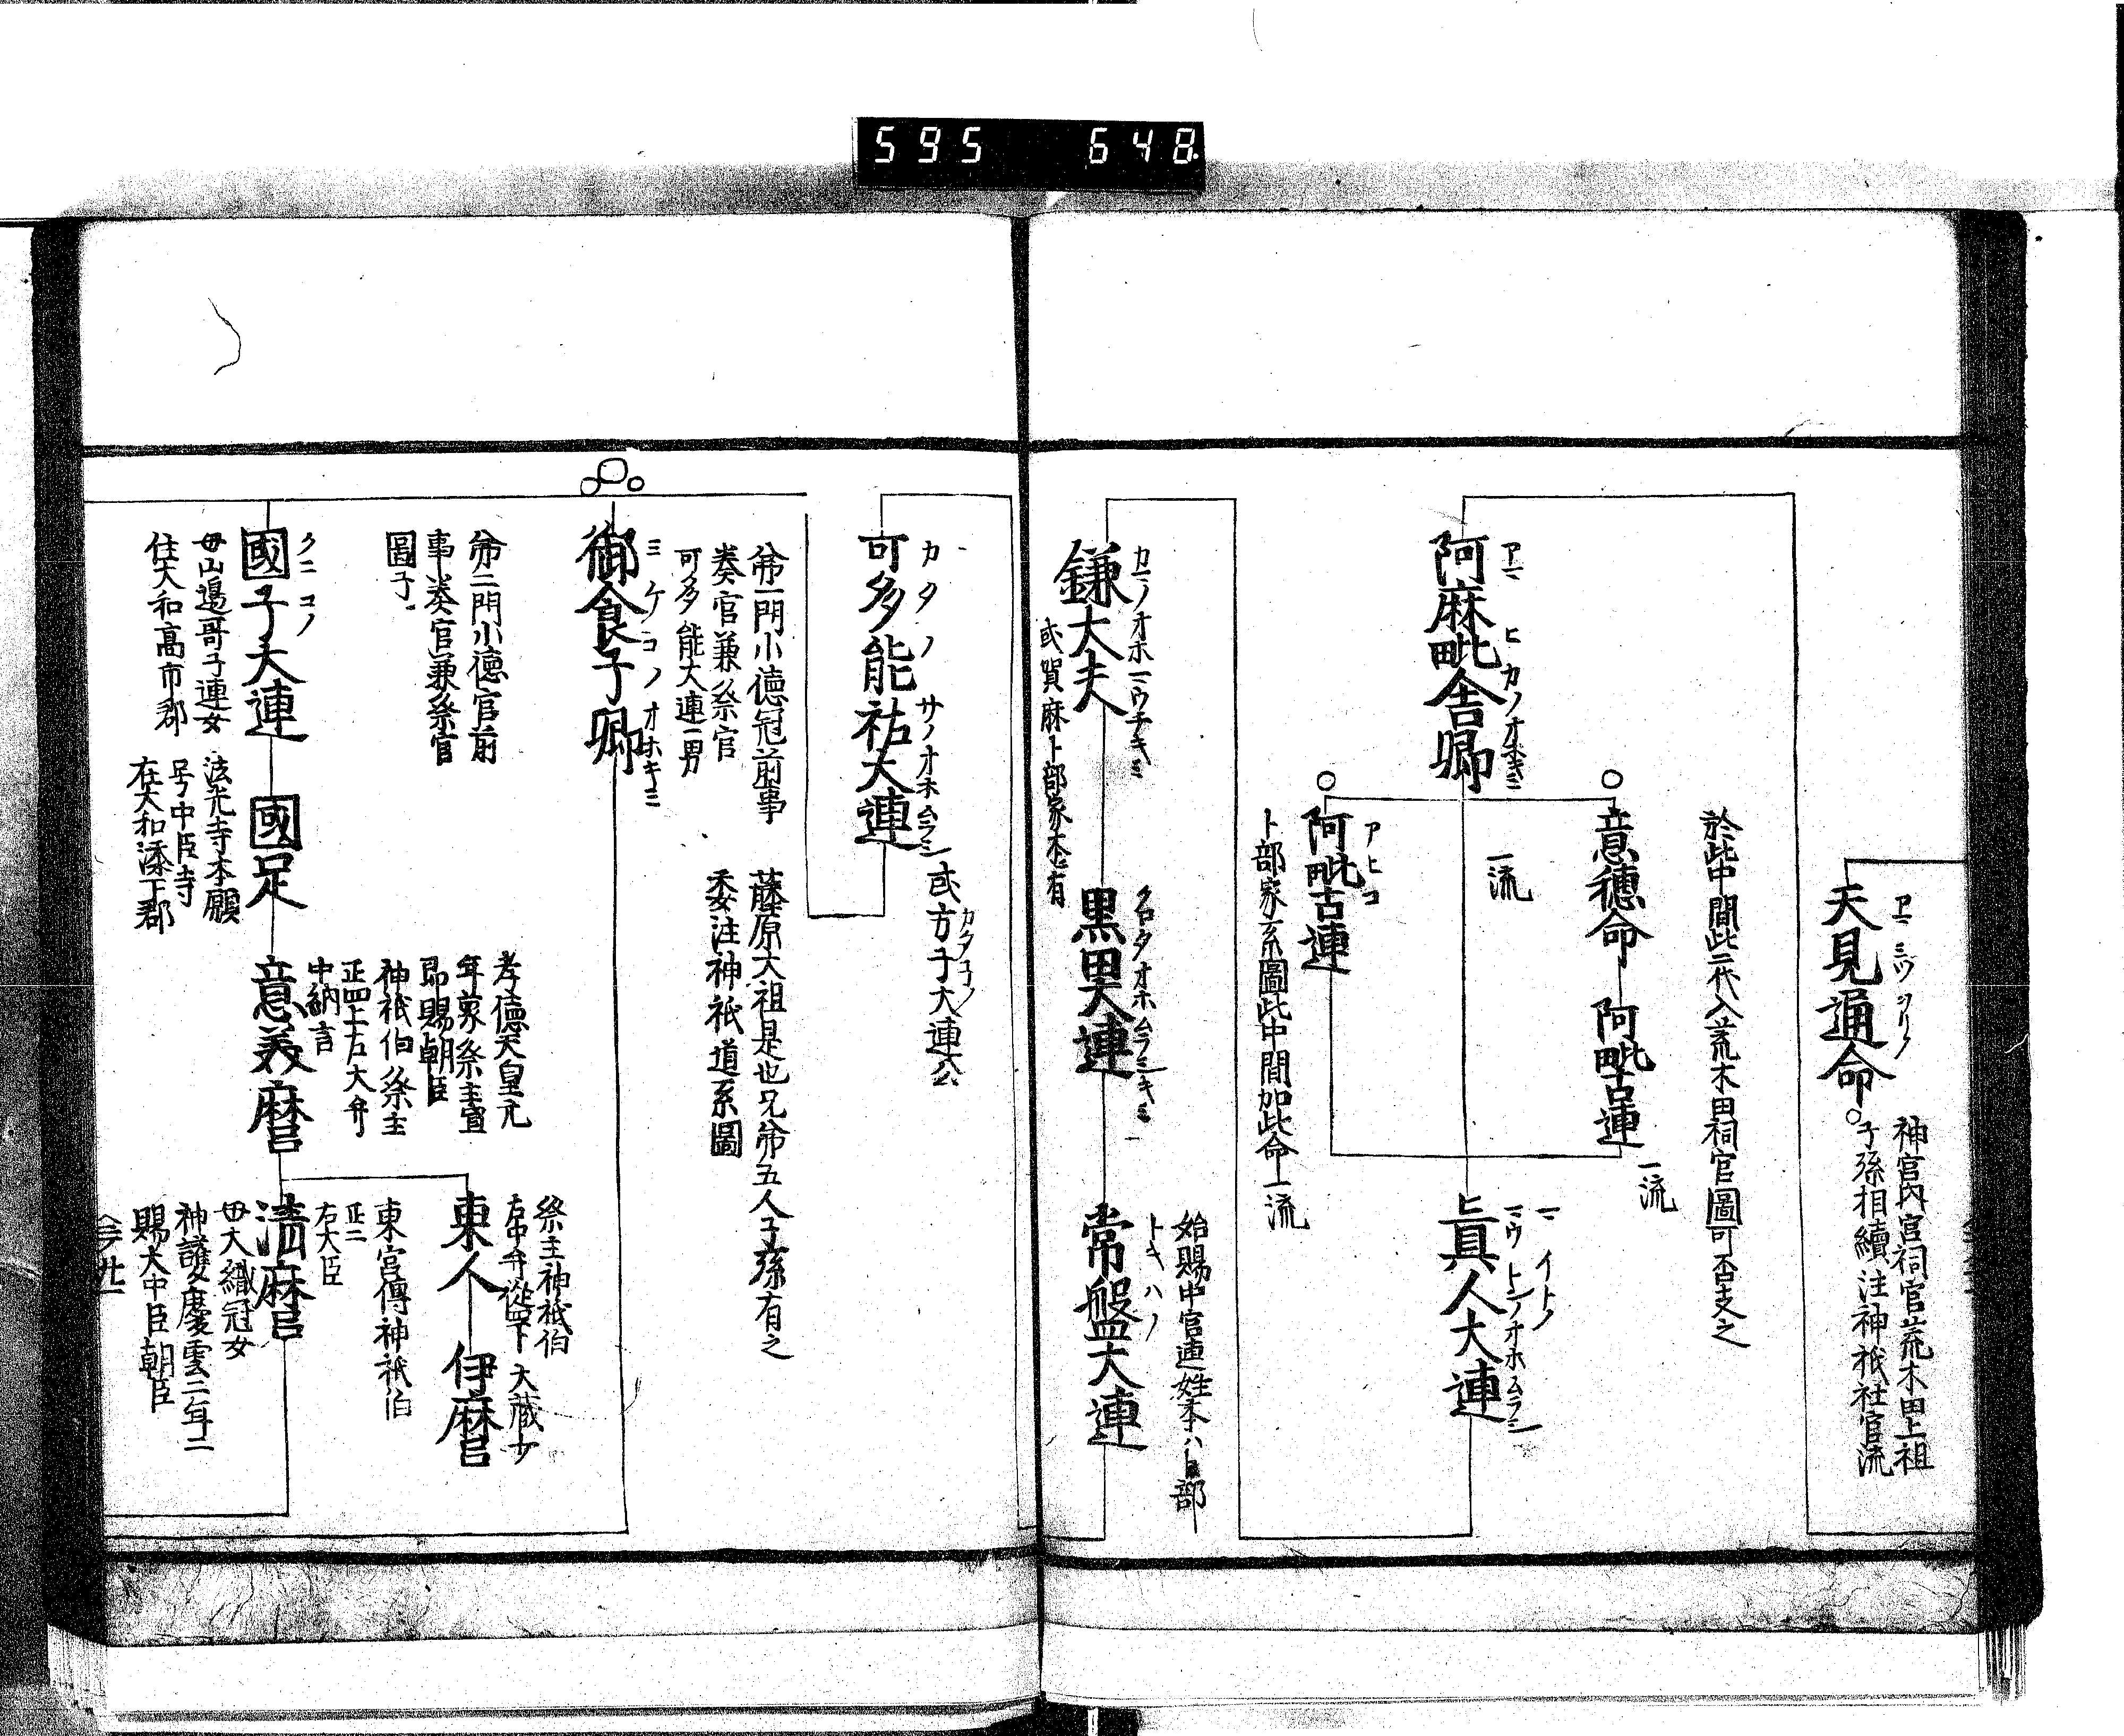 595 648
天見通命
神宮内宮祠官荒木田上祖
子孫相續注神祇社官流
於此中間此二代入荒木田祠官圖可否支之
阿麻毗舎卿
意穂命
阿毗古連
一流
一流
阿毗古連
アヒコ
卜部家系圖此中間加此命一流
眞人大連
鎌大夫
或賀麻卜部家本ニ有
黒田大連
常盤大連
トキハノ
始賜中官連姓本ハ卜部
可多能祐大連
カタノ サノオホムラシ
或方子大連公
カタコノ
第一門小徳冠前事
奏官兼祭官
可多能大連一男
藤原大祖是也兄弟五人子孫有之
委注神祇道系圖
御食子卿
ミケコノオホキミ
第二門小徳官前
事奏官兼祭官
圖子
國子大連
クニコノ
母山邉哥子連女
住大和高市郡
國足
法光寺本願
号中臣寺
在大和添下郡
意美麿
孝徳天皇元
年象祭主宣
即賜朝臣
神祇伯祭主
正四上右大弁
中納言
東人
祭主神祇伯
右中弁従四下
伊麿
大蔵少
清麿
東宮傳神祇伯
正二
右大臣
母大織冠女
神護慶雲三年二
賜大中臣朝臣